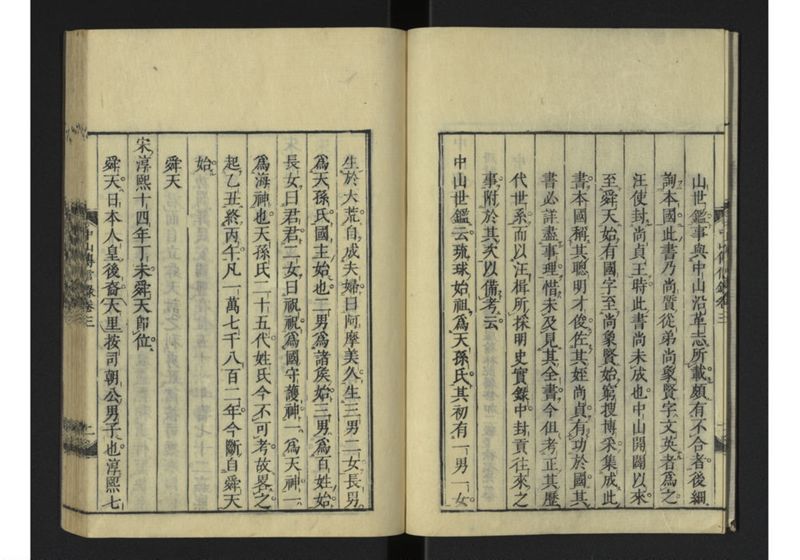 山世鑑事與中山沿革志所載頗有不合者後細
詢本國此書乃尚質從弟尚象賢字文英者爲之
汪使封尚貞王時此書尚未成也中山開闢以來
至舜天始有國字至尚象賢始窮搜博采集成此
書本國稱其聰明才俊佐其姪尚貞有功於國其
書必詳盡事理惜未及見其全書今但考正其歷
代世系而以汪楫所採明史實錄中封貢往來之
事附於其次以備考云
中山世鑑云琉球始祖爲天孫氏其初有一男一女
生於大荒自成夫婦曰阿摩美久生三男二女長男
爲天孫氏國主始也二男爲諸侯始三男爲百姓始
長女曰君君二女曰祝祝爲國守護神一爲天神一
爲海神也天孫氏二十五代姓氏今不可考故畧之
起乙丑終丙午凡一萬七千八百二年今斷自舜天
始
舜天
宋淳熙十四年丁未舜天卽位
舜天日本人皇後裔大里按司朝公男子也淳熙七
中山傳信錄卷三